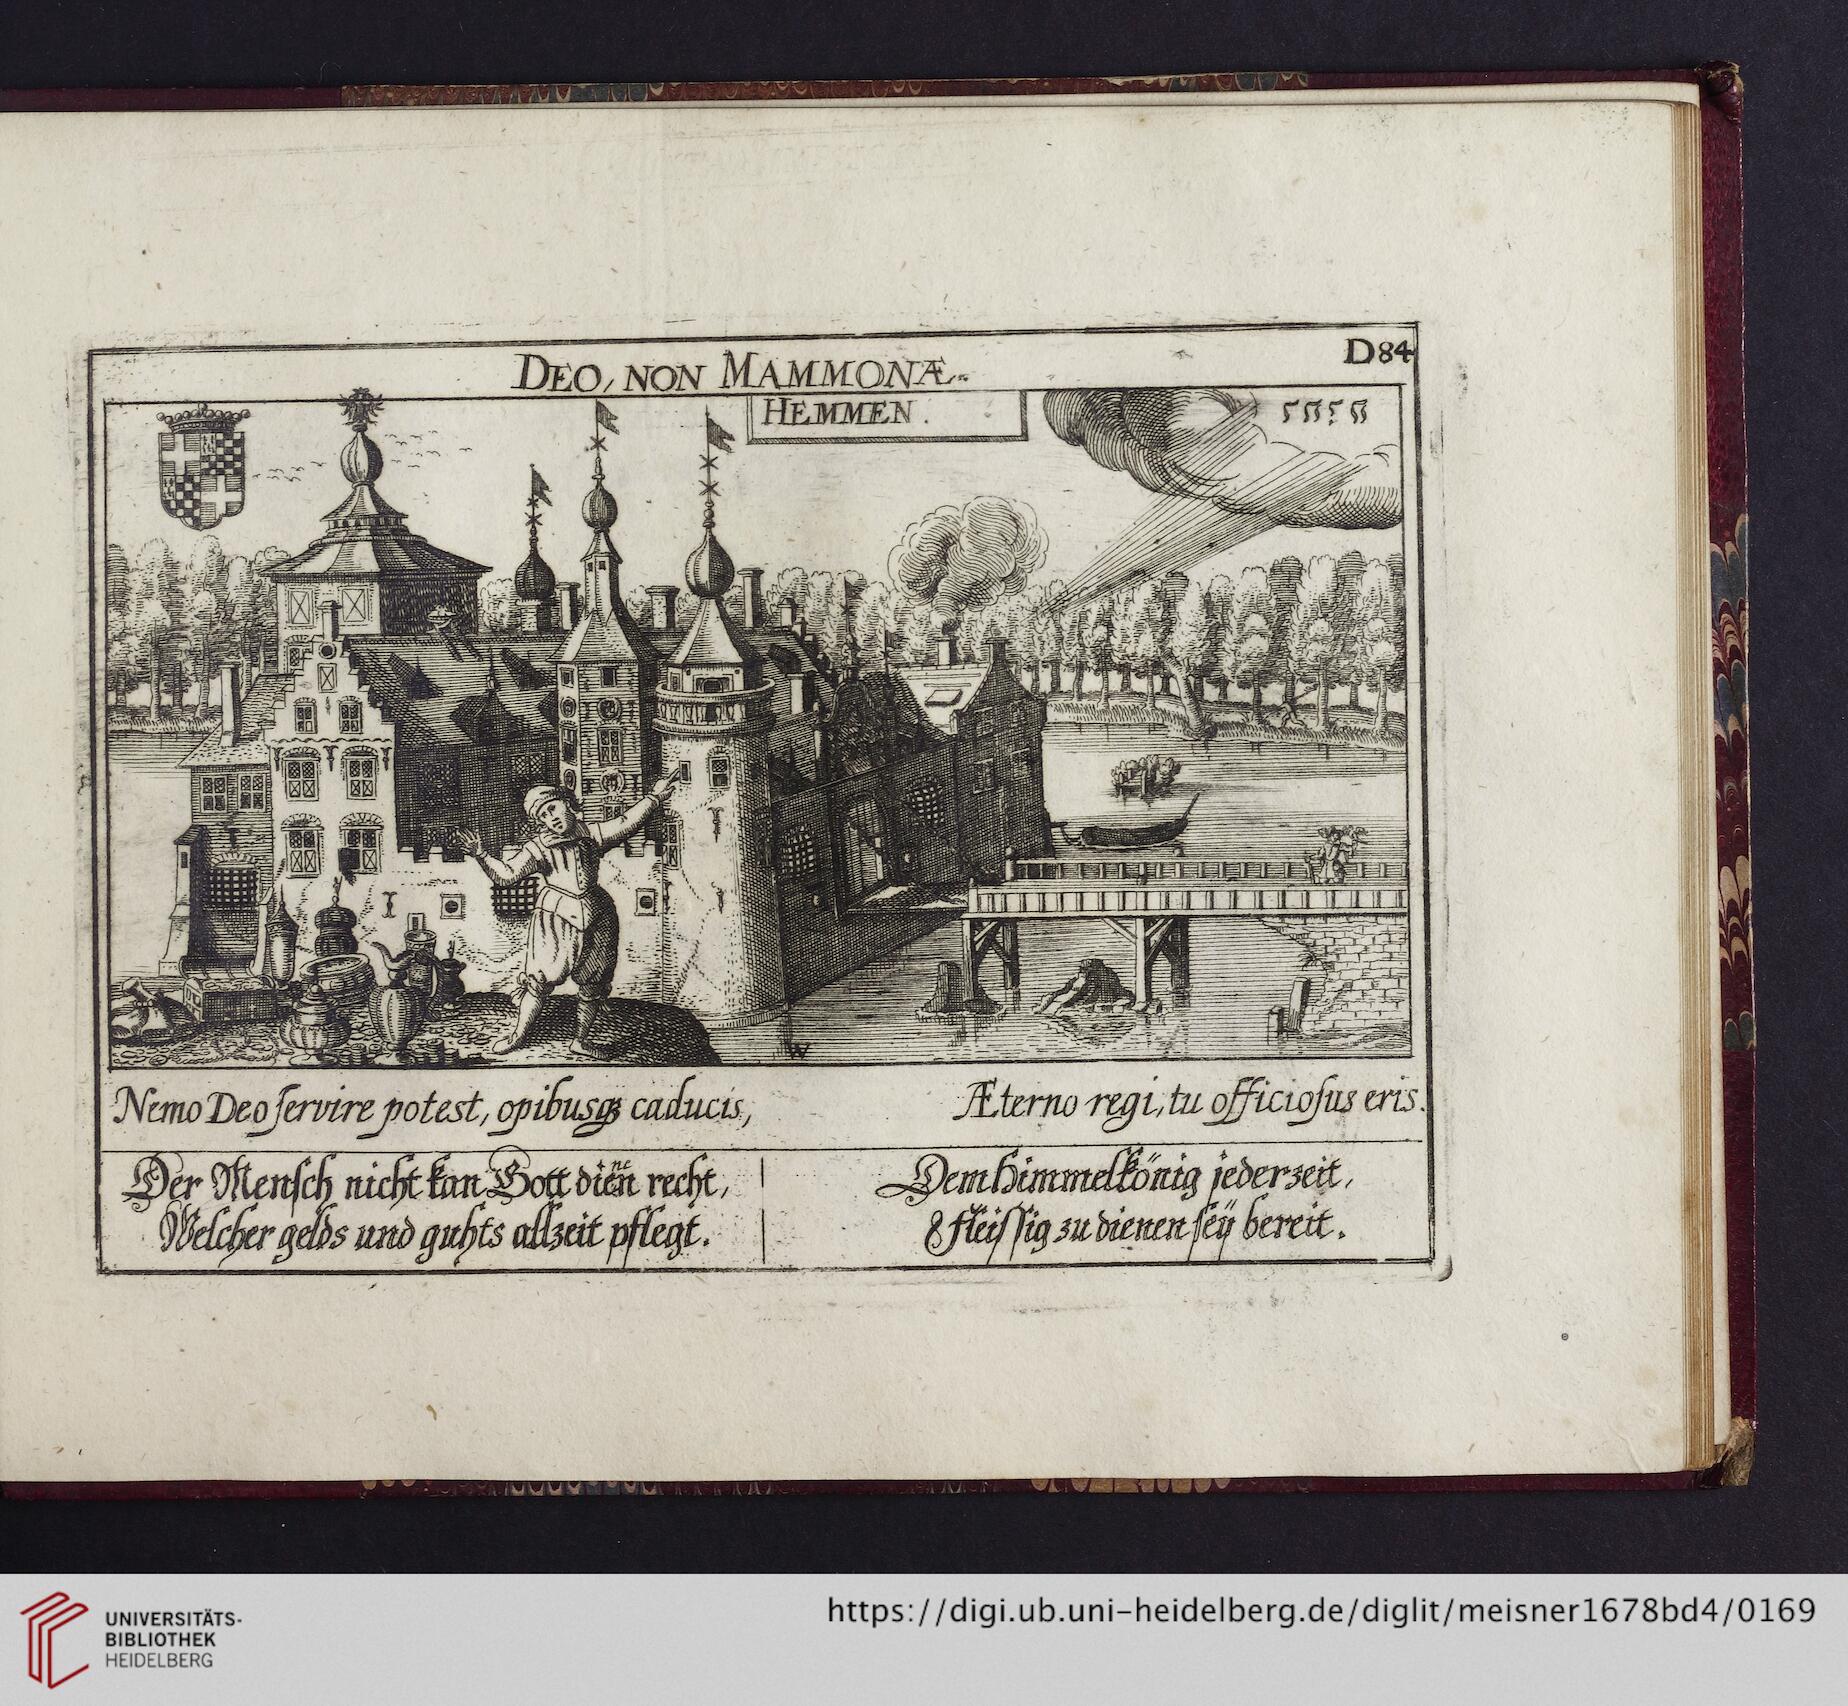 DEO, NON MAMMONÆ.
D84
HEMMEN.
W
Nemo Deo ſervire potest, opibusqꝫ caducis,
Æterno regi, tu officioſus eris.
Der Menſch nicht kan Gott dienen recht,
Welcher gelds und guhts allzeit pflegt.
Dem Himmelkönig jederzeit,
Fleiſſig zu dienen ſeÿ bereit.
UNIVERSITÄTS-
BIBLIOTHEK
HEIDELBERG
https://digi.ub.uni-heidelberg.de/diglit/meisner1678bd4/0169